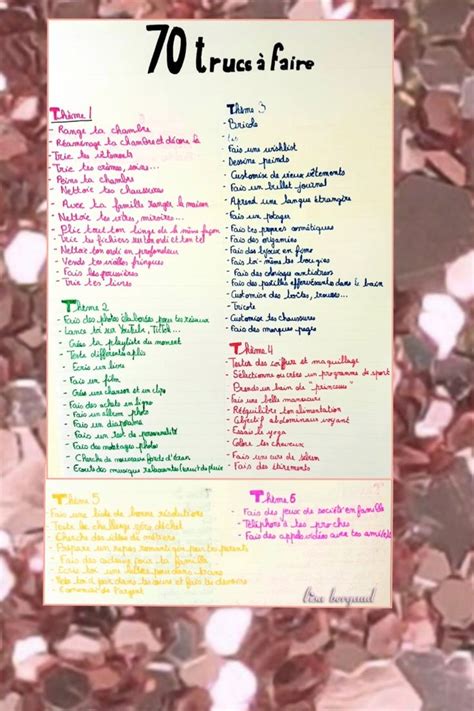 70 trucs à faire
Thème 1
- Range ta chambre
- Réaménage ta chambre et décore la
- Trie tes vêtements
- Trie tes crèmes, soins...
- Peins ta chambre
- Nettoie tes chaussures
- Avec ta famille ranger la maison
- Nettoie tes vitres, miroires...
- Plie tout ton linge de la même façon
- Trie tes fichiers sur ton ordi et ton tel
- Nettoie ton ordi en profondeur
- Vends tes vielles fringues
- Fais les poussières
- Trie tes livres
Thème 2
- Fais des photos élaborées pour tes réseaux
- Lance toi sur Youtube, TikTok...
- Crées ta playliste du moment
- Teste différents aplis
- Ecris un livre
- Fais un film
- Crées une chanson et un clip
- Fais des achats en ligne
- Fais un album photo
- Fais un diaporama
- Fais un test de personnalité
- Fais des montages photos
- Cherche de nouveaux fonds d'écran
- Ecoute des musiques relaxantes
Thème 3
- Bricole
- Lis
- Fais une wishlist
- Dessine peinds
- Customise de vieux vêtements
- Fais un bullet journal
- Aprend une langue étrangère
- Fais un potager
- Fais tes propres cosmétiques
- Fais des origamies
- Fais des bijoux en fimo
- Fais toi-même tes bougies
- Fais des coloriages antistress
- Fais des pastilles effervescentes dans le bain
- Customise des boîtes, trousses...
- Tricote
- Customise tes chaussures
- Fais des marques pages
Thème 4
- Testes des coiffure et maquillage
- Sélectionne ou crées un programme de sport
- Prends un bain de "princesse"
- Fais une belle manucure
- Rééquilibre ton alimentation
- Objectif abdominaux voyant
- Essaie le yoga
- Colore tes cheveux
- Fais une cure de sérum
- Fais des étirements
Thème 5
- Fais une liste de bonne résolutions
- Teste le challenge zéro déchet
- Cherche des idées de métiers
- Prépare un repas romantique pour tes parents
- Fais des cadeaux pour ta famille
- Ecris toi une lettre pour dans 10ans
- fais tes devoirs
- Economise de l'argent
Thème 6
- Fais des jeux de société en famille
- Téléphone à tes proches
- Fais des appels vidéos avec tes ami(e)s
lisa borgaud